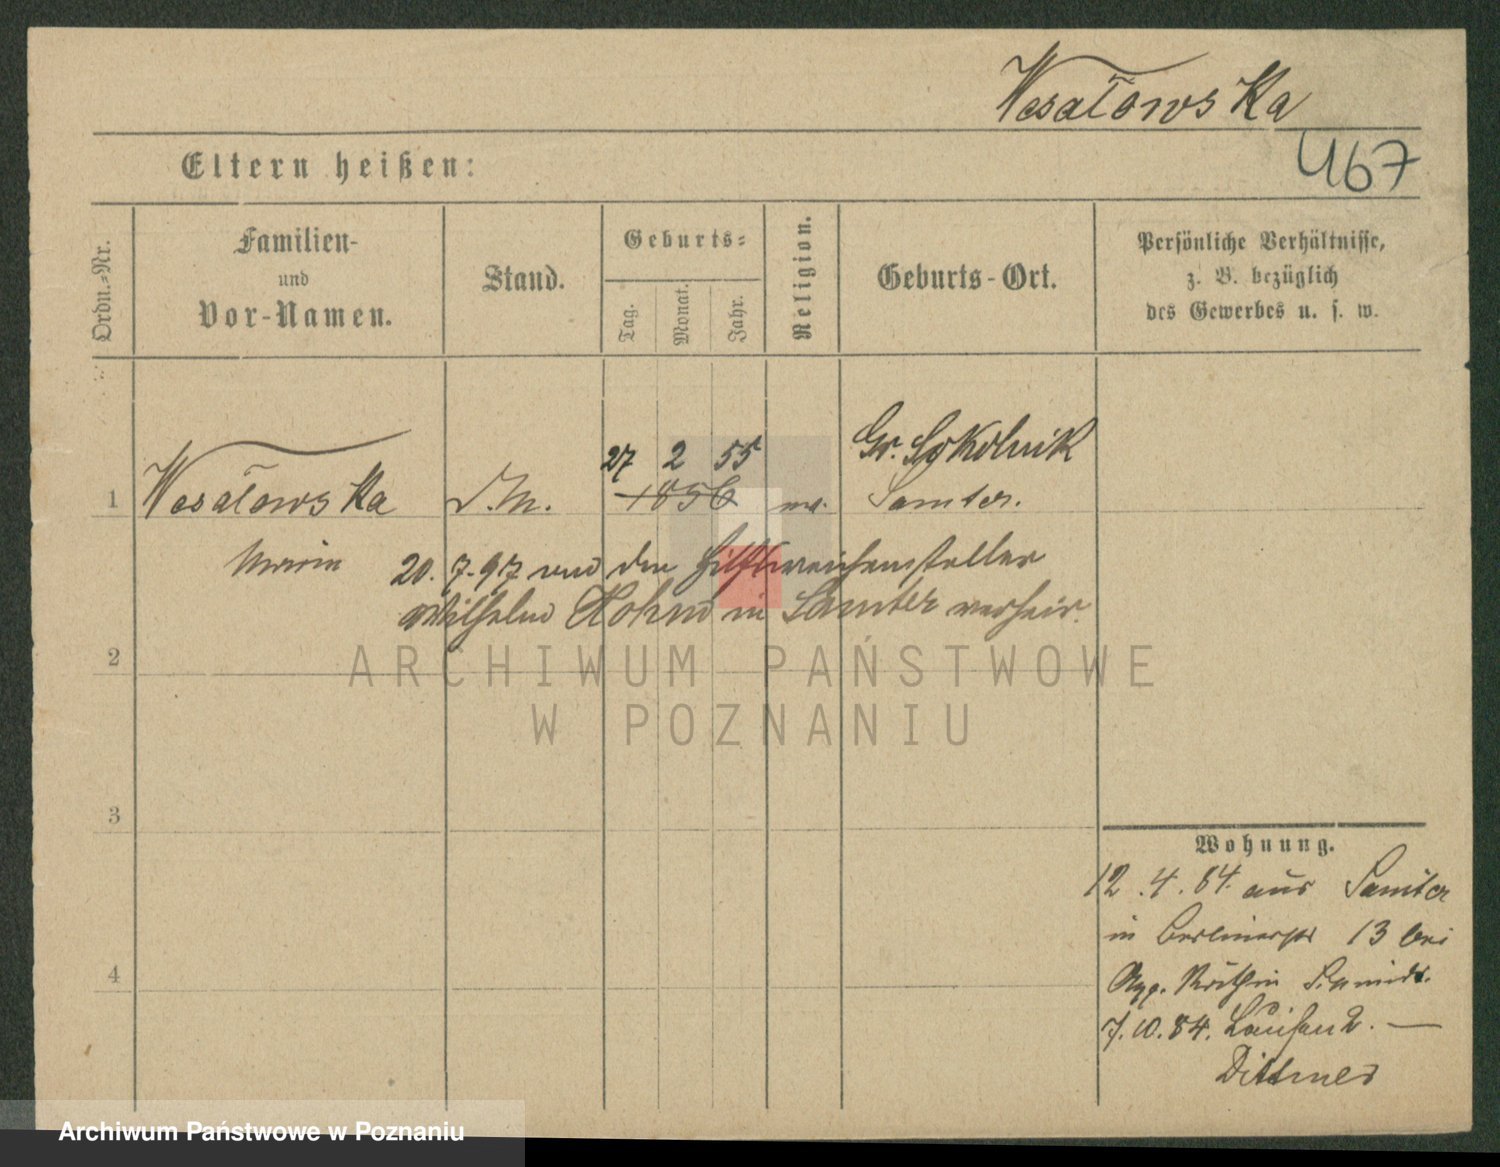 Wesałowska
467
Eltern heißen:
Ordn.-Nr.
Familien-
und
Vor-Namen.
Stand.
Geburts-
Tag.
Monat.
Jahr.
Religion.
Geburts-Ort.
Persönliche Verhältnisse,
z. B. bezüglich
des Gewerbes u. s. w.
27 2 55 Gr. Sokolnik
1 Wesałowska D.M. 1856 Samter.
20. 7. 97 den Hilfsweichensteller
Wilhelm Hohm in Samter verheir.
2
ARCHIWUM PAŃSTWOWE
W POZNANIU
3
Wohnung.
12. 4. 84. aus Samter
in Berlinerstr 13 bei
4
Schmidt.
7. 10. 84. 2. —
Dittmer
Archiwum Państwowe w Poznaniu